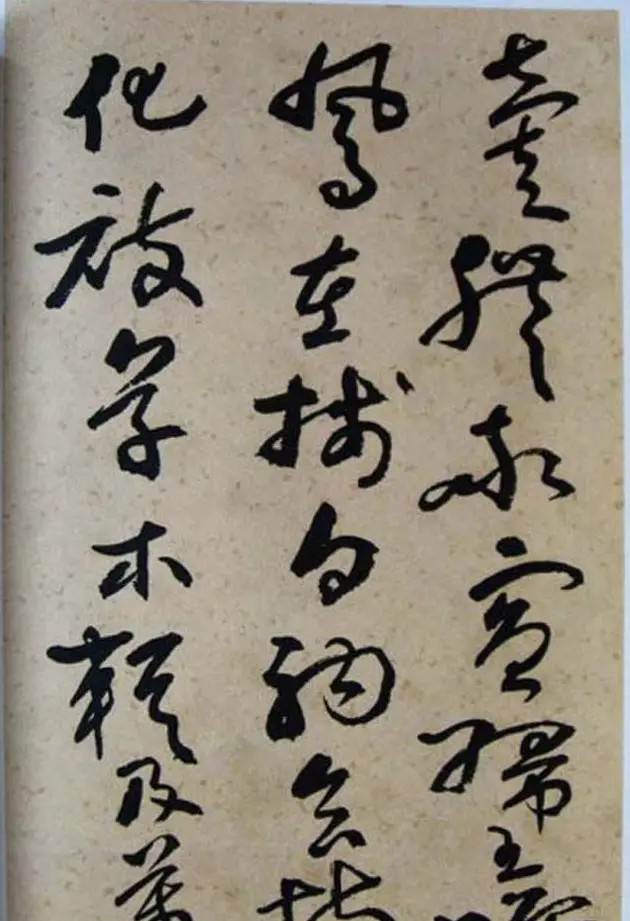 壹體率賓歸王鳴
鳳在樹白駒食場
化被草木賴及萬